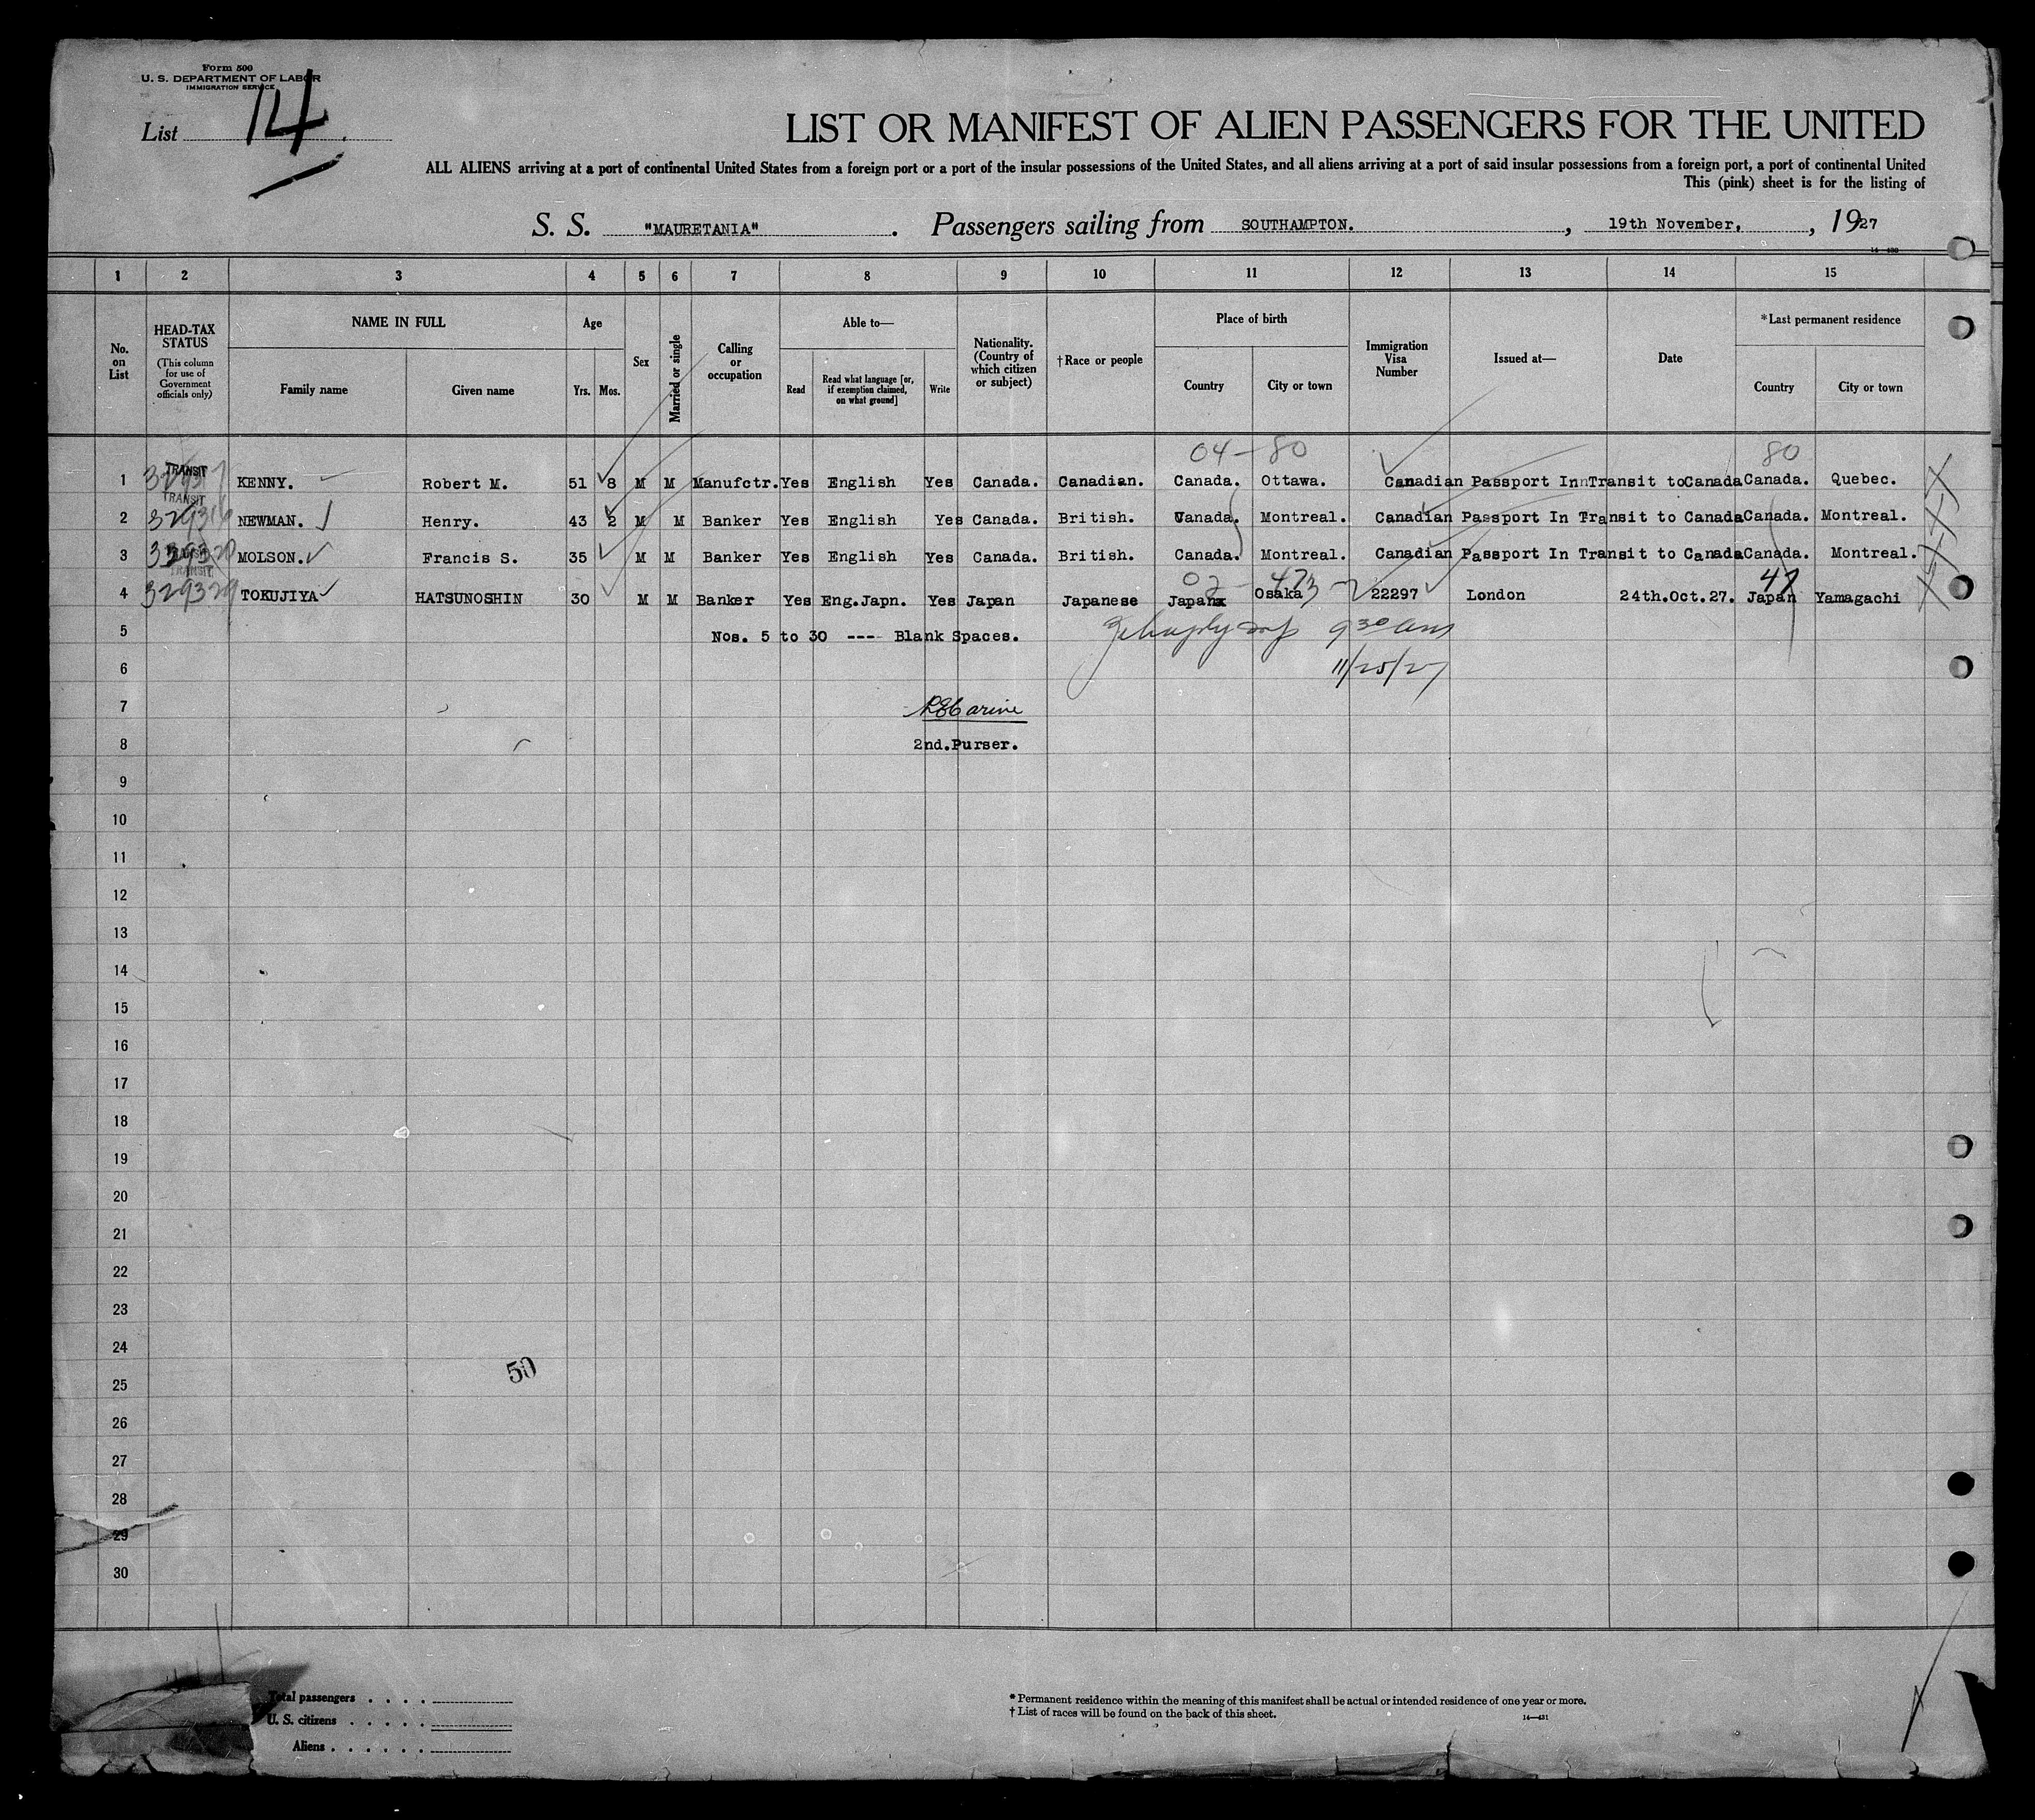 Form 500
U. S. DEPARTMENT OF LABOR
IMMIGRATION SERVICE
List 14
LIST OR MANIFEST OF ALIEN PASSENGERS FOR THE UNITED
ALL ALIENS arriving at a port of continental United States from a foreign port or a port of the insular possessions of the United States, and all aliens arriving at a port of said insular possessions from a foreign port, a port of continental United
This (pink) sheet is for the listing of
S. S. "MAURETANIA". Passengers sailing from SOUTHAMPTON., 19th November,, 1927
1 2 3 4 5 6 7 8 9 10 11 12 13 14 15
No. on List
HEAD-TAX STATUS
(This column for use of Government officials only)
NAME IN FULL
Family name Given name
Age
Yrs. Mos.
Sex
Married or single
Calling or occupation
Able to—
Read Read what language [or, if exemption claimed, on what ground] Write
Nationality. (Country of which citizen or subject)
†Race or people
Place of birth
Country City or town
Immigration Visa Number
Issued at—
Date
*Last permanent residence
Country City or town
04-80 80
1 TRANSIT KENNY. Robert M. 51 8 M M Manufctr. Yes English Yes Canada. Canadian. Canada. Ottawa. Canadian Passport InnTransit toCanada Canada. Quebec.
2 TRANSIT NEWMAN. Henry. 43 2 M M Banker Yes English Yes Canada. British. Canada. Montreal. Canadian Passport In Transit to Canada Canada. Montreal.
3 TRANSIT MOLSON. Francis S. 35 M M Banker Yes English Yes Canada. British. Canada. Montreal. Canadian Passport In Transit to Canada Canada. Montreal.
02-473 47
4 TRANSIT 329329 TOKUJIYA HATSUNOSHIN 30 M M Banker Yes Eng.Japn. Yes Japan Japanese Japanx Osaka 22297 London 24th.Oct.27. Japan Yamagachi
5 Nos. 5 to 30 ---- Blank Spaces. 9 30 am
6 11/25/27
7
8 2nd.Purser.
9
10
11
12
13
14
15
16
17
18
19
20
21
22
23
24
50
25
26
27
28
29
30
Total passengers . . . .
U. S. citizens . . . . .
Aliens . . . . . .
* Permanent residence within the meaning of this manifest shall be actual or intended residence of one year or more.
† List of races will be found on the back of this sheet.
14—431